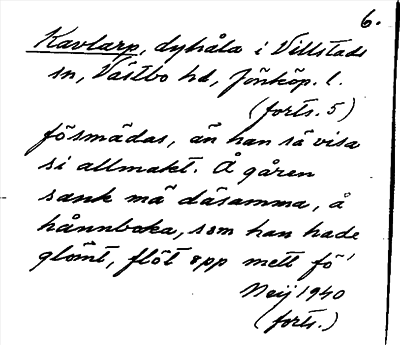 6.
Kavlarp, dyhåla i Villstads
sn, Västbo hd, Jönköp. l.
(forts. 5)
försmädas, än han så visa
si allmakt. Å gåren
sank mä däsamma, å
hånnboka, som han hade
glömt, flöt opp mett fö'
Neij 1940
(forts.)